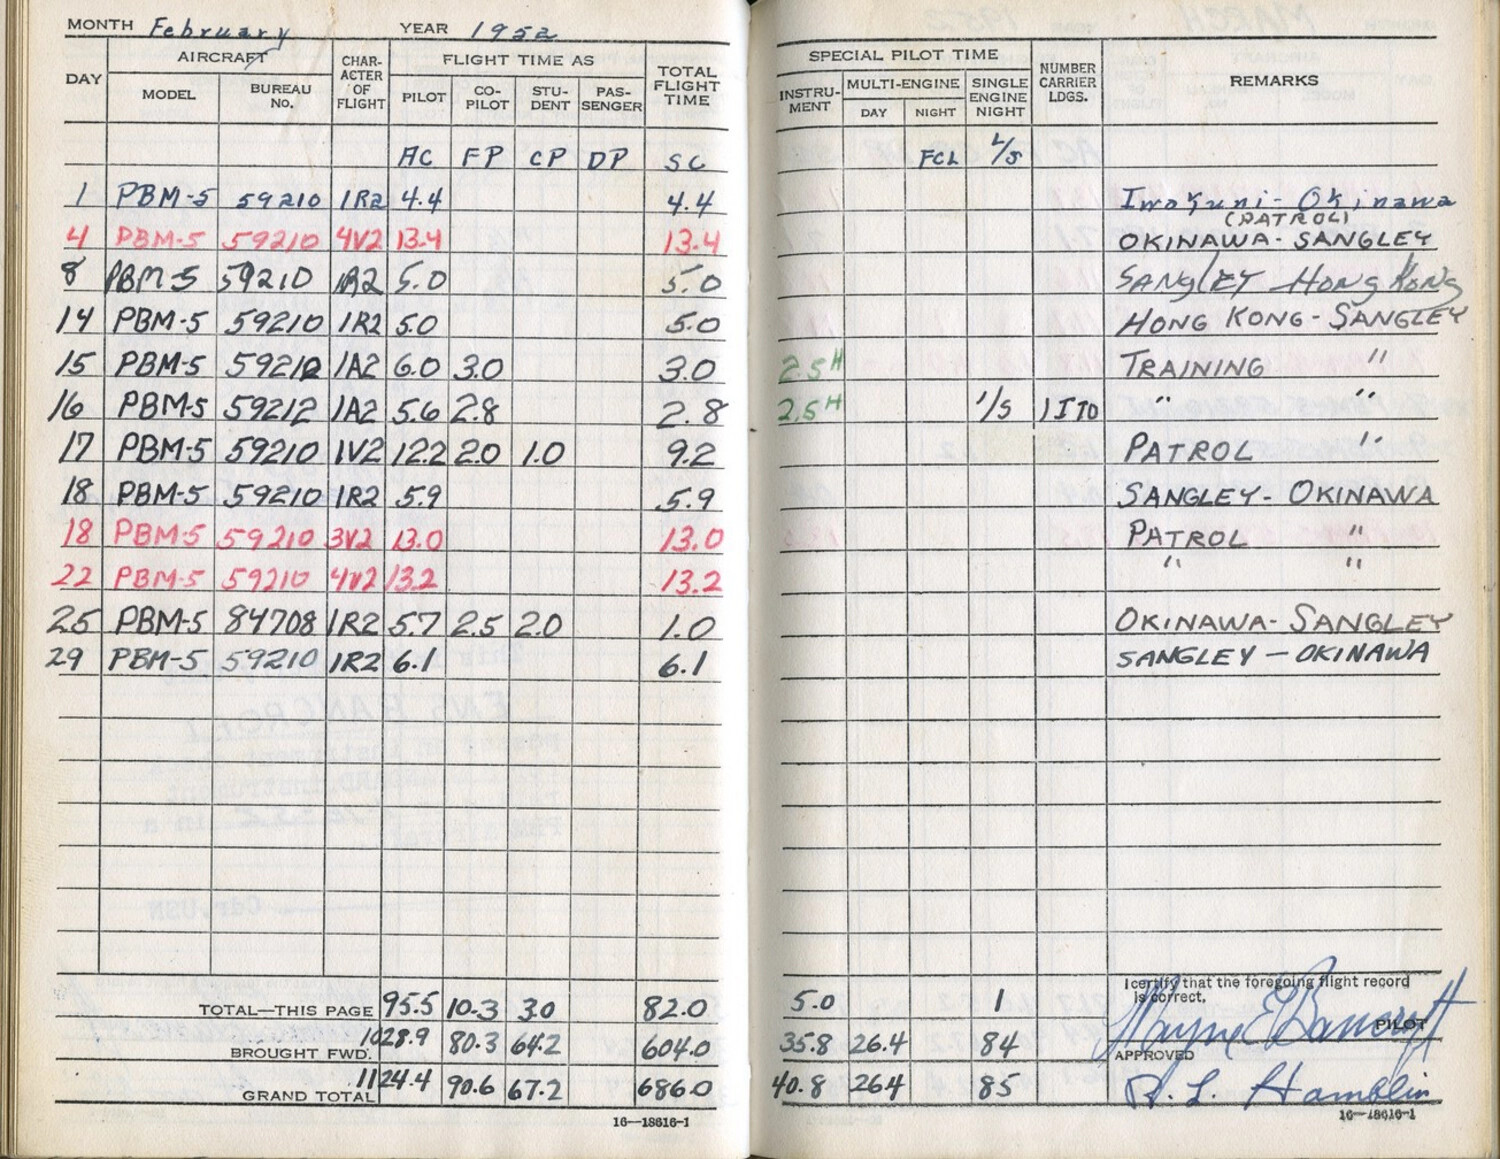 MONTH February YEAR 1952
DAY AIRCRAFT MODEL BUREAU NO. CHARACTER OF FLIGHT FLIGHT TIME AS PILOT CO-PILOT STUDENT PASSENGER TOTAL FLIGHT TIME SPECIAL PILOT TIME INSTRUMENT MULTI-ENGINE DAY NIGHT SINGLE ENGINE NIGHT NUMBER CARRIER LDGS. REMARKS
AC FP CP DP SC FCL L/S
1 PBM-5 59210 1R2 4.4 4.4 Iwakuni - Okinawa
(PATROL)
4 PBM-5 59210 4V2 13.4 13.4 OKINAWA- SANGLEY
8 PBM-5 59210 1R2 5.0 5.0 SANGLEY Hong Kong
14 PBM-5 59210 1R2 5.0 5.0 HONG KONG- SANGLEY
15 PBM-5 59212 1A2 6.0 3.0 3.0 2.5H TRAINING "
16 PBM-5 59212 1A2 5.6 2.8 2.8 2.5H 1/5 1 ITO " "
17 PBM-5 59210 1V2 12.2 2.0 1.0 9.2 PATROL "
18 PBM-5 59210 1R2 5.9 5.9 SANGLEY- OKINAWA
18 PBM-5 59210 3V2 13.0 13.0 PATROL "
22 PBM-5 59210 4V2 13.2 13.2 " "
25 PBM-5 84708 1R2 5.7 2.5 2.0 1.0 OKINAWA- SANGLEY
29 PBM-5 59210 1R2 6.1 6.1 SANGLEY - OKINAWA
I certify that the foregoing flight record is correct.
TOTAL—THIS PAGE 95.5 10.3 3.0 82.0 5.0 1
Wayne E Bancroft PILOT
BROUGHT FWD. 1028.9 80.3 64.2 604.0 35.8 26.4 84
APPROVED
GRAND TOTAL 1124.4 90.6 67.2 686.0 40.8 26.4 85 R. L. Hamblin
16—18616-1 16—18616-1